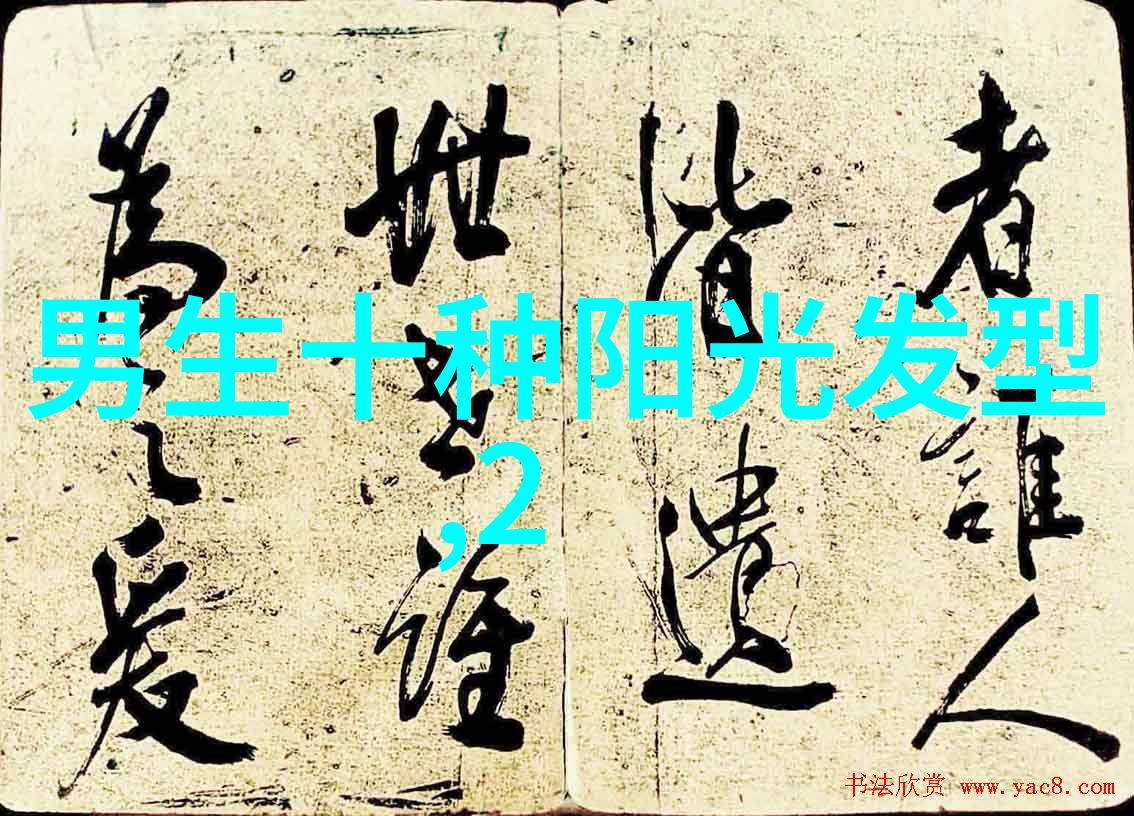 者誰人
皆遺
世誰
為之
男生十种阳光发型
,2
书法欣赏 www.yac8.com